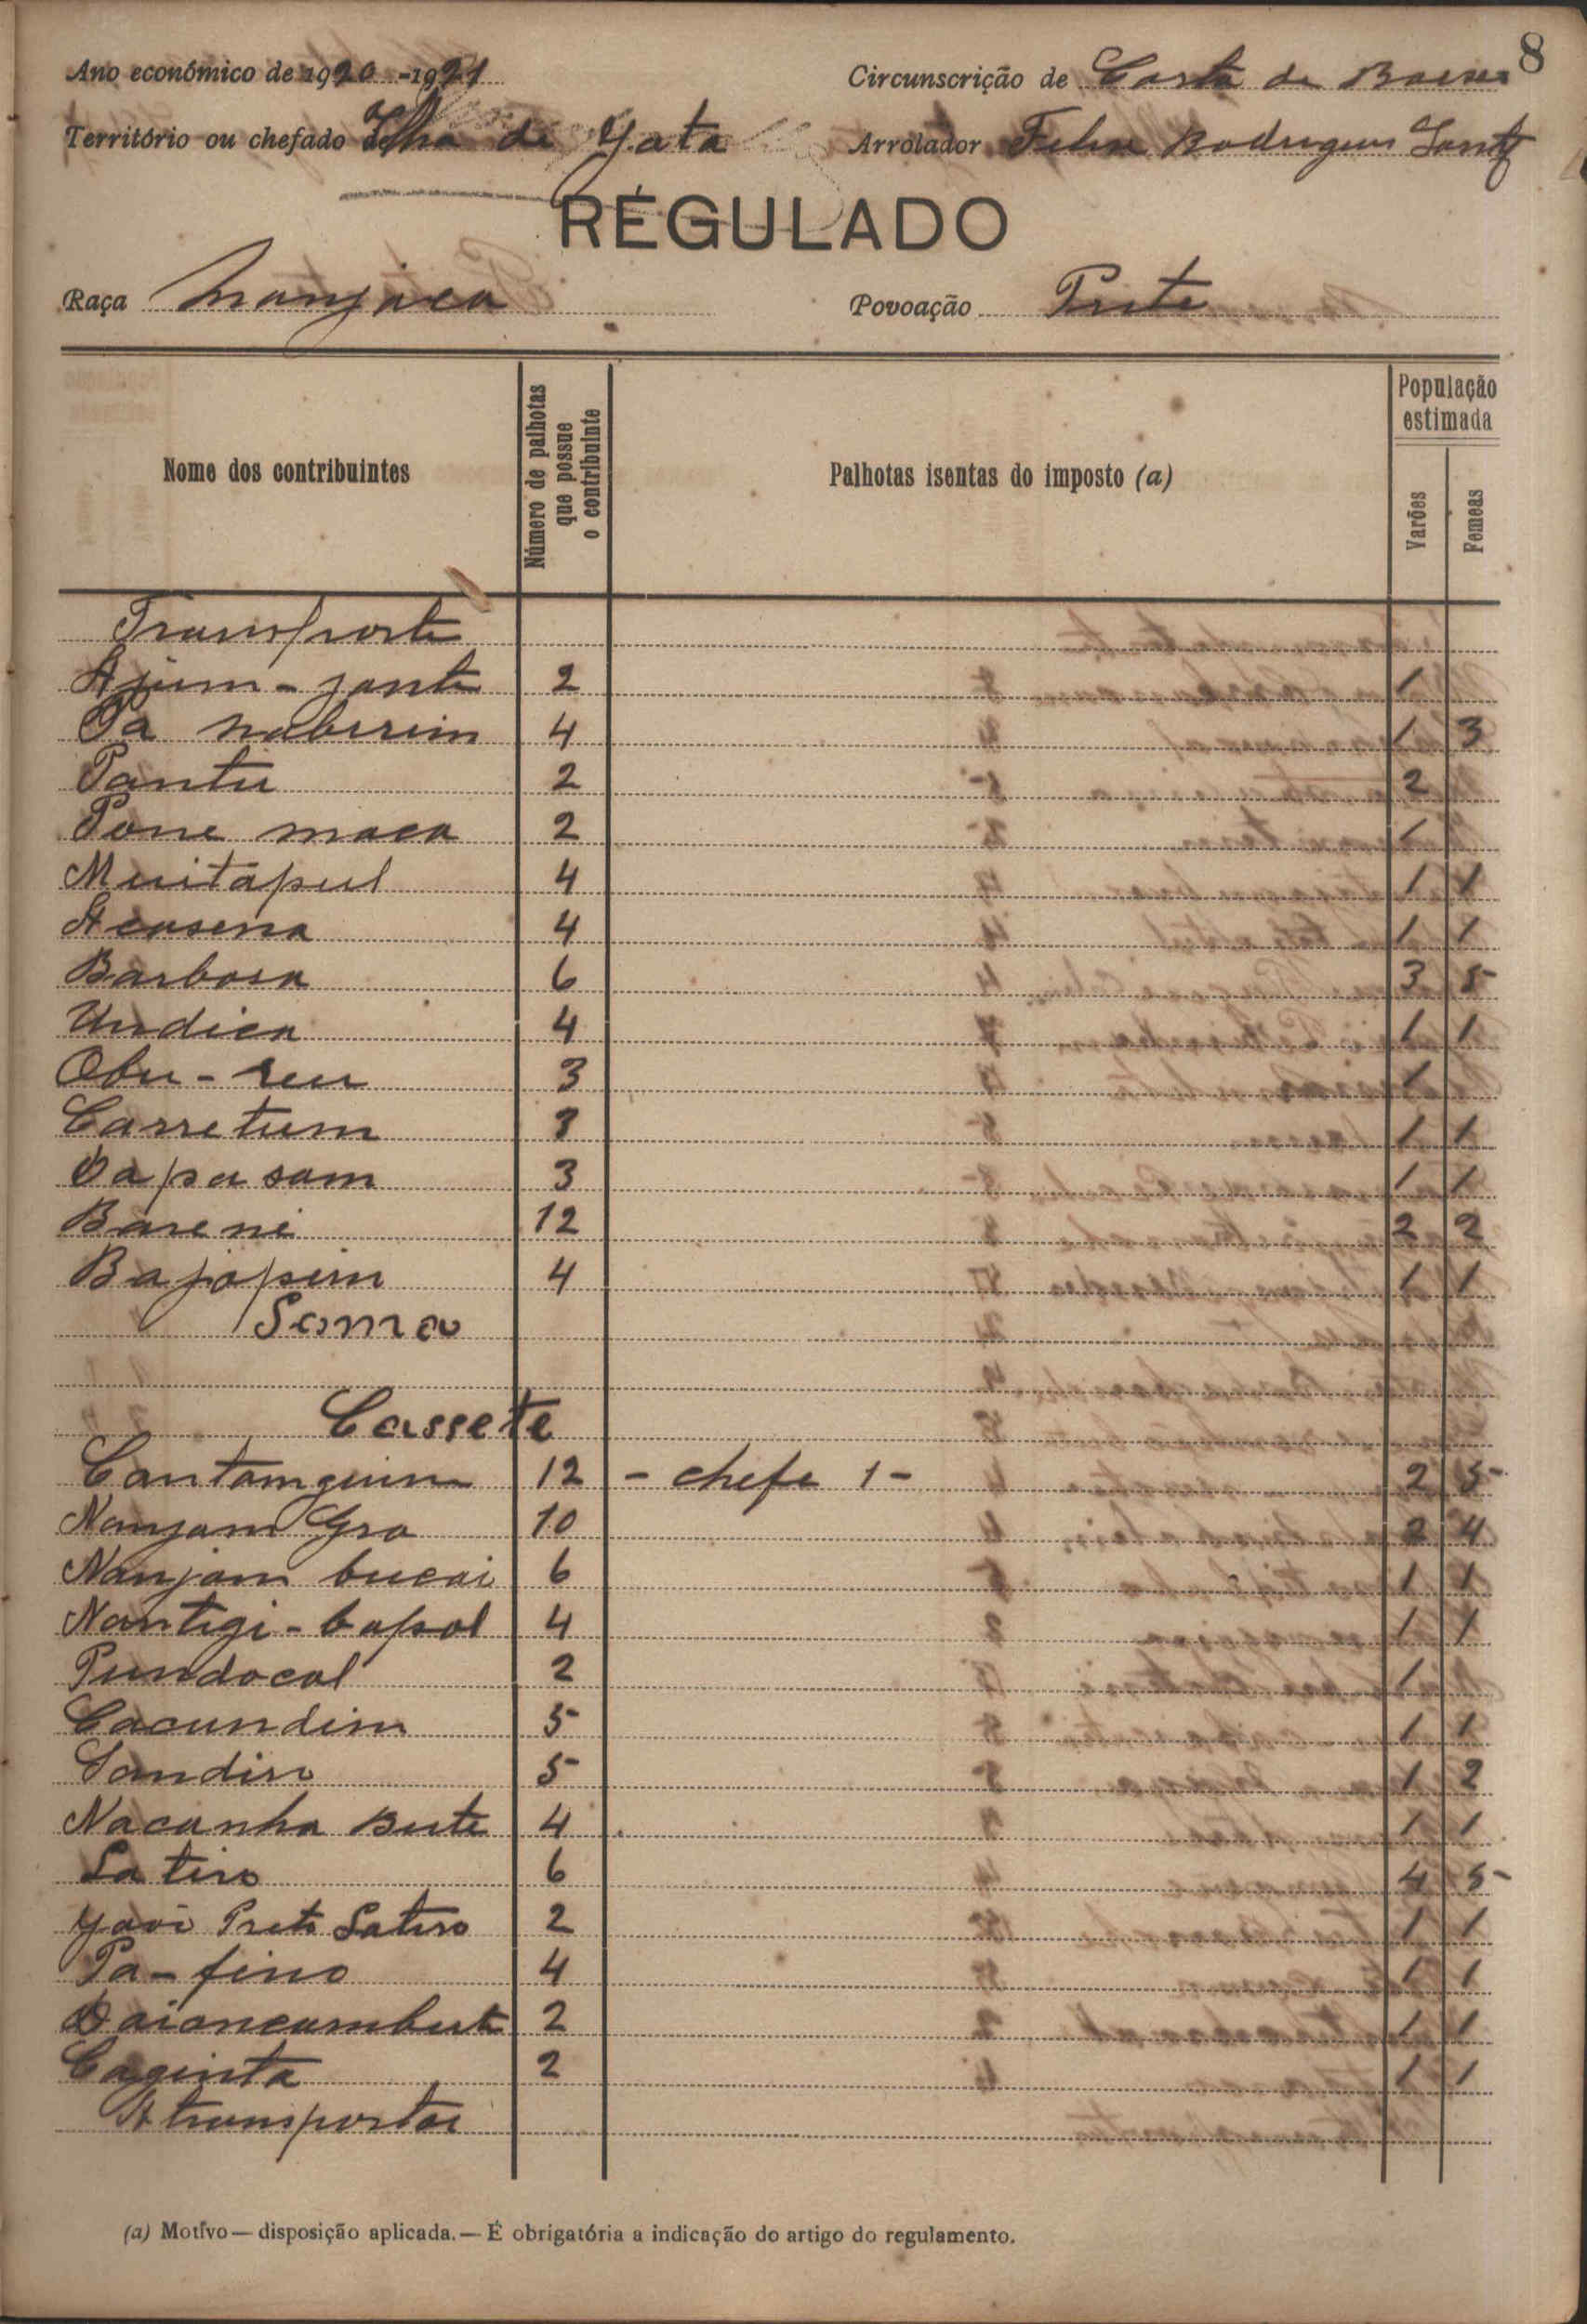 8
Ano económico de 1920-1921 Circunscrição de Costa de Baixo
Território ou chefado de Ilha de Yata Arrolador Felix Rodrigues
REGULADO
Raça Manjaca Povoação
Nome dos contribuintes
Número de palhotas que possue o contribuinte
Palhotas isentas do imposto (a)
População estimada
Varões
Femeas
Transporte
2 1
Pa 4 1 3
Pantu 2 2
Pone maca 2 1
Muitapul 4 1 1
Acasena 4 1 1
Barbosa 6 3 5
Undica 4 1 1
3 1
Carretum 3 1 1
Dapa sam 3 1 1
Barene 12 2 2
Bajopim 4 1 1
Soma
Cassete
Cantamguim 12 - chefe 1 - 2 5
Nanjam Gra 10 2 4
Nanjam bucai 6 1 1
Nantigi - bapol 4 1 1
Pundocal 2 1
Cacundim 5 1 1
Sandiro 5 1 2
Nacanha Bute 4 1 1
Satiro 6 4 5
Yavi Preto Satiro 2 1 1
Pa - fino 4 1 1
2 1 1
Caginta 2 1 1
A transportar
(a) Motivo — disposição aplicada. — É obrigatória a indicação do artigo do regulamento.